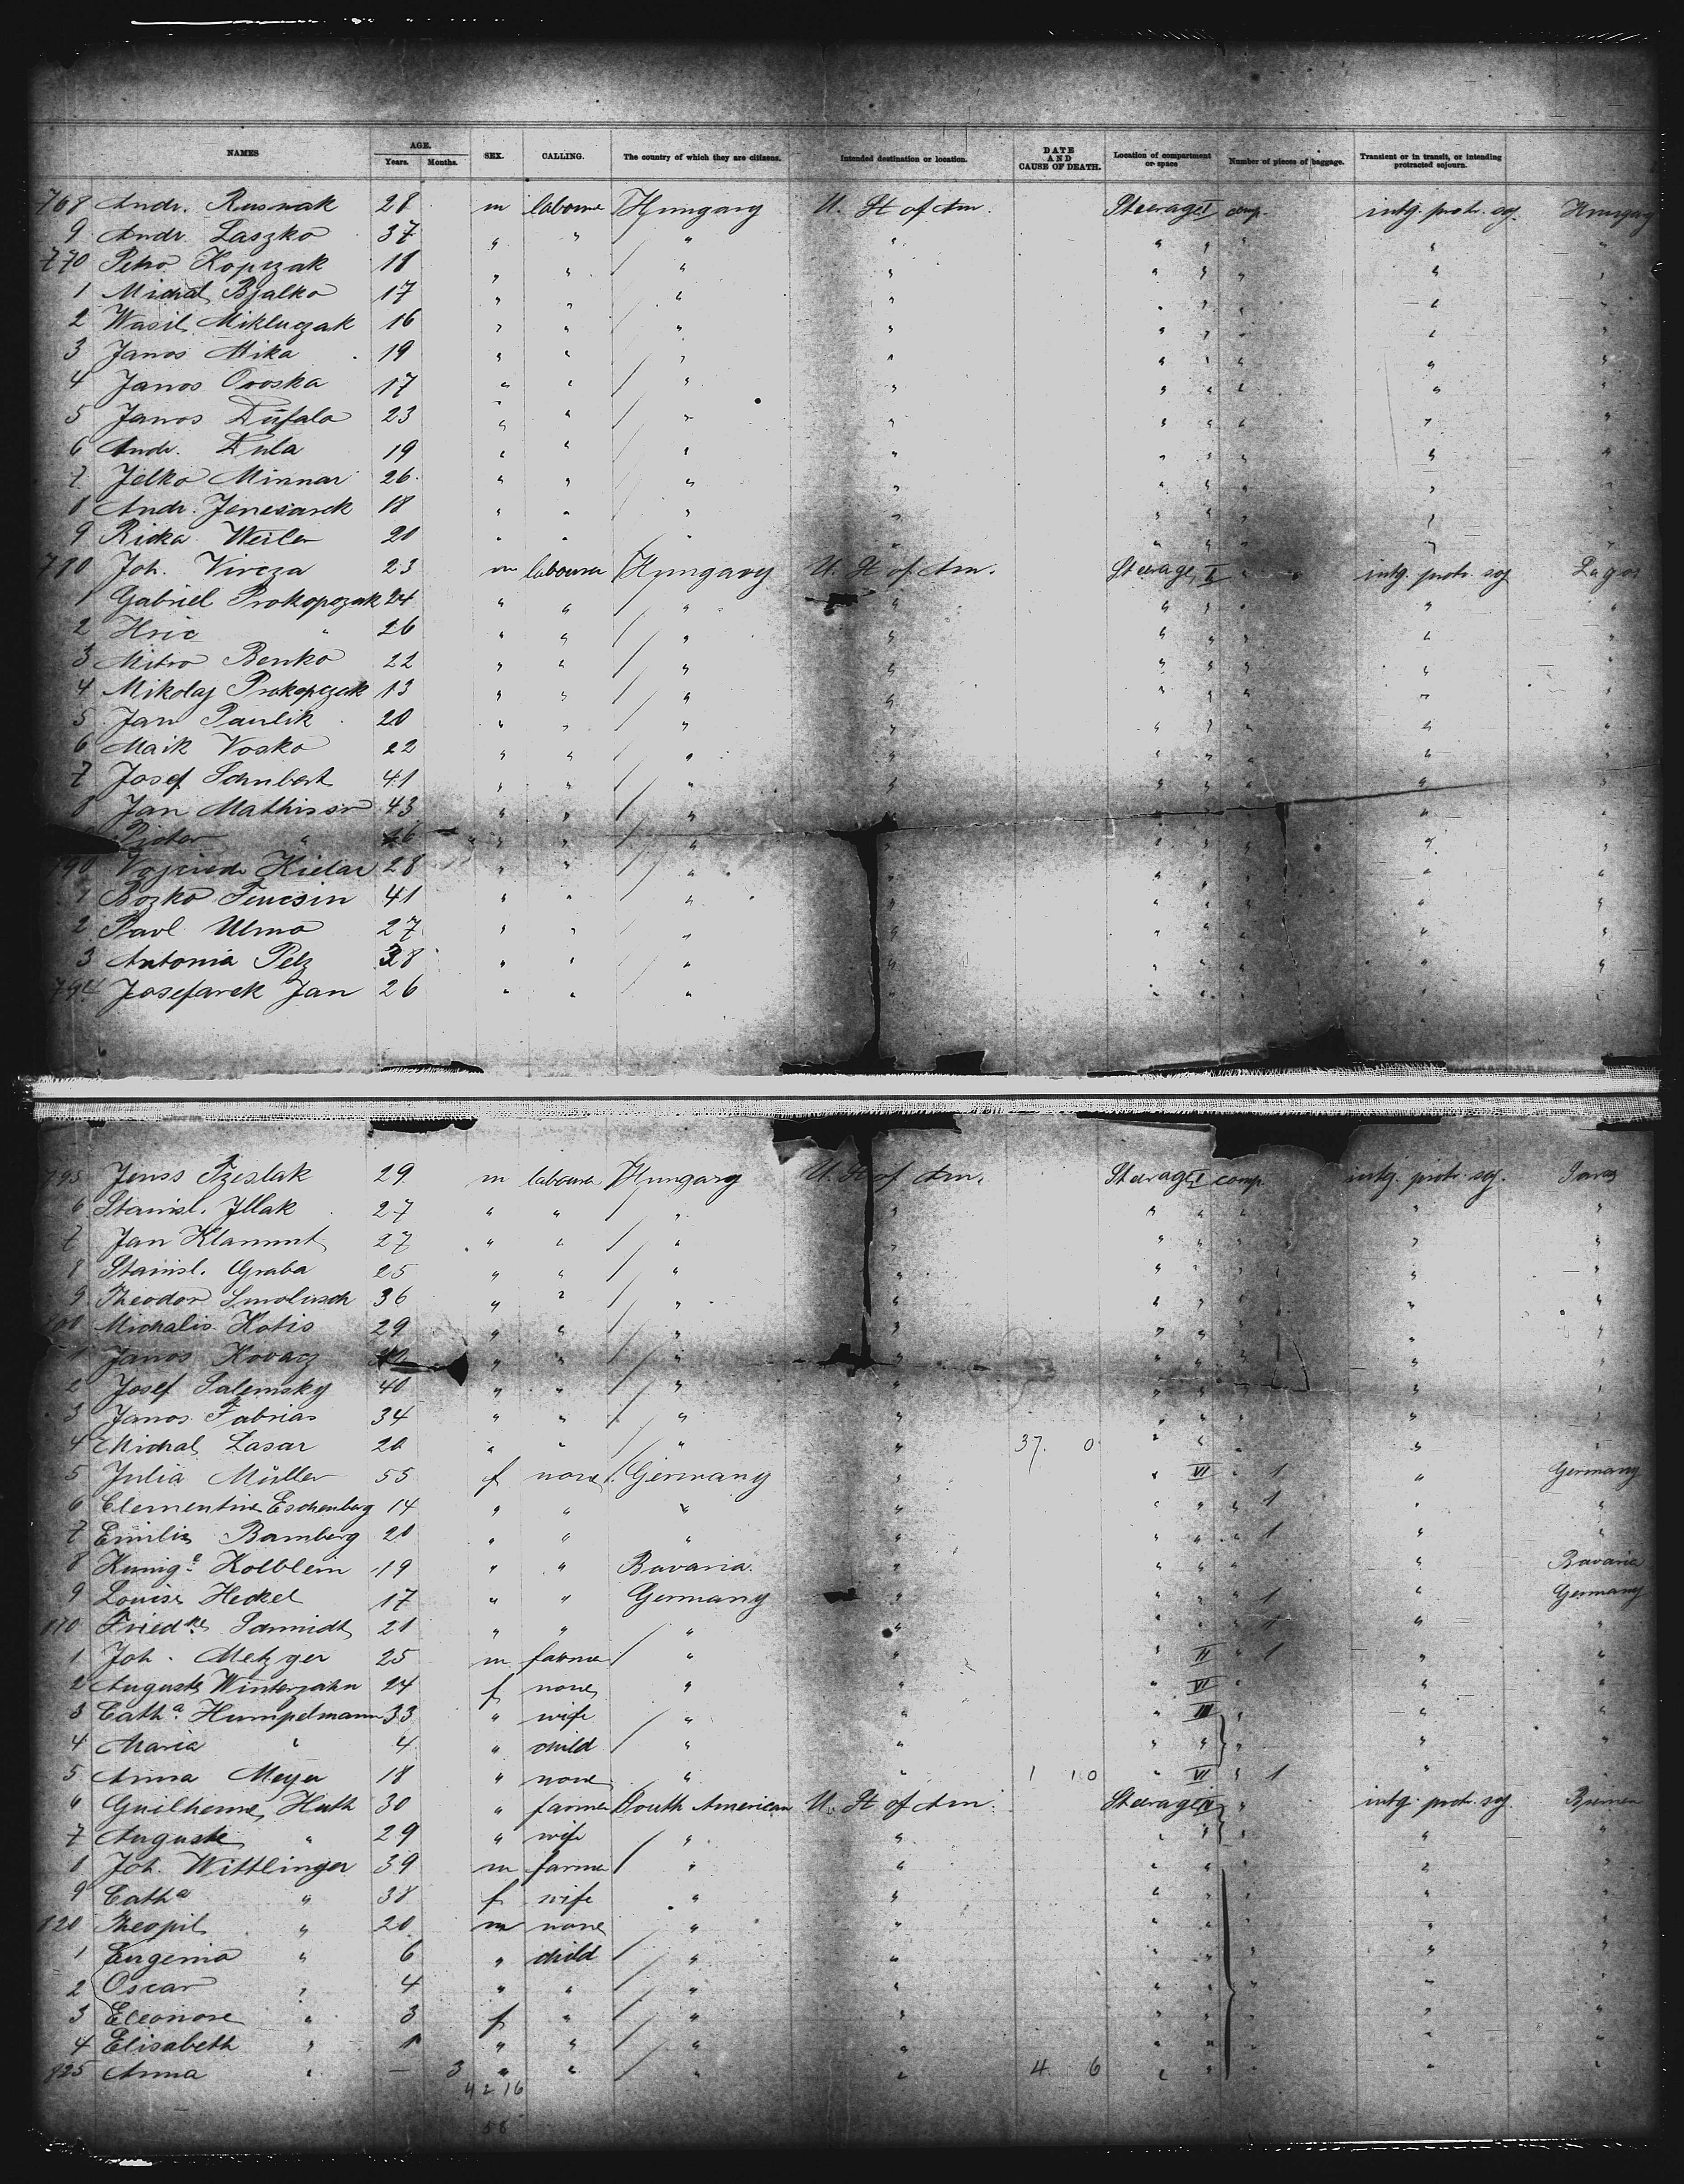 NAMES AGE. Years. Months. SEX. CALLING. The country of which they are citizens. Intended destination or location. DATE AND CAUSE OF DEATH. Location of compartment or space Number of pieces of baggage. Transient or in transit, or intending protracted sojourn.
768 Andr. Rusnak 28 m laboure Hungary U. St of Am. Steerage I comp. intg. protr. soj. Hungary
9 Andr. Laszko 37 " " " " " " " " "
770 Petro Kopczak 18 " " " " " " " " "
1 Michal Bjalko 17 " " " " " " " " "
2 Wasil Mikluczak 16 " " " " " " " " "
3 Janos Mika 19 " " " " " " " " "
4 Janos Ovoska 17 " " " " " " " " "
5 Janos Dufala 23 " " " " " " " " "
6 Andr. Dula 19 " " " " " " " " "
7 Jelko Minnar 26 " " " " " " " " "
8 Andr. 18 " " " " " " " " "
9 Ricka Weiler 20 " " " " " " " " "
780 Joh. Vircza 23 m laboure Hungary U. St of Am. Steerage I " intg. protr. soj
1 Gabriel Prokopczak 24 " " " " " " " " "
2 Hric " 26 " " " " " " " " "
3 Mitro Benko 22 " " " " " " " " "
4 Mikolaj Prokopczak 13 " " " " " " " " "
5 Jan Paulik 20 " " " " " " " " "
6 Maik Vosko 22 " " " " " " " " "
7 Josef Schubert 41 " " " " " " " " "
8 Jan Mathison 43 " " " " " " " " "
Piotor " " " " " " " " " "
790 Vojciech Kielar 28 " " " " " " " " "
1 Bozko 41 " " " " " " " " "
2 Pavl Ulma 27 " " " " " " " " "
3 Antonia Pelz 38 " " " " " " " " "
794 Josefarek Jan 26 " " " " " " " " "
795 Jenss 29 m laboure Hungary U. St of Am. Steerage I comp intg. protr. soj.
6 Stanisl. Illak 27 " " " " " " " " "
7 Jan Klammt 27 " " " " " " " " "
8 Stanisl. Graba 25 " " " " " " " " "
9 Theodor Smolusch 36 " " " " " " " " "
800 Michalis Kotis 29 " " " " " " " " "
1 Janos Kovacz " " " " " " " " "
2 Josef Salemsky 40 " " " " " " " " "
3 Janos Fabrias 34 " " " " " " " " "
4 Michal Lasar 20 " " " " 37. 0 " " " " "
5 Julia Müller 55 f none Germany " " VI " 1 " Germany
6 Clementine Eschenberg 14 " " " " " " " 1 " "
7 Emilie Bamberg 20 " " " " " " " 1 " "
8 Kunig.e Kolblein 19 " " Bavaria " " " " " Bavaria
9 Louise Heckel 17 " " Germany " " " " 1 " Germany
810 Friedke Schmidt 21 " " " " " " " 1 " "
1 Joh. Metzger 25 m farme " " " II " 1 " "
2 Auguste Winterzahn 24 f none " " " VI " " "
3 Catha. Humpelmann 33 " wife " " " III " " "
4 Maria " 4 " child " " " " " " "
5 Anna Meyer 18 " none " " 1 10 " VI " 1 " "
6 Guilherme Huth 30 " farme South American U. St of Am. Steerage " intg. protr. soj Bremen
7 Auguste " 29 " wife " " " " " " "
8 Joh. Wittlinger 39 m farme " " " " " " "
9 Catha " 38 f wife " " " " " " "
820 Theopil " 20 m none " " " " " " "
1 Eugenia " 6 " child " " " " " " "
2 Oscar " 4 " " " " " " " " "
3 Eleonore " 3 f " " " " " " " "
4 Elisabeth " 1 " " " " " " " " "
825 Anna " — 3 " " " " 4 6 " " " " "
42 16
58